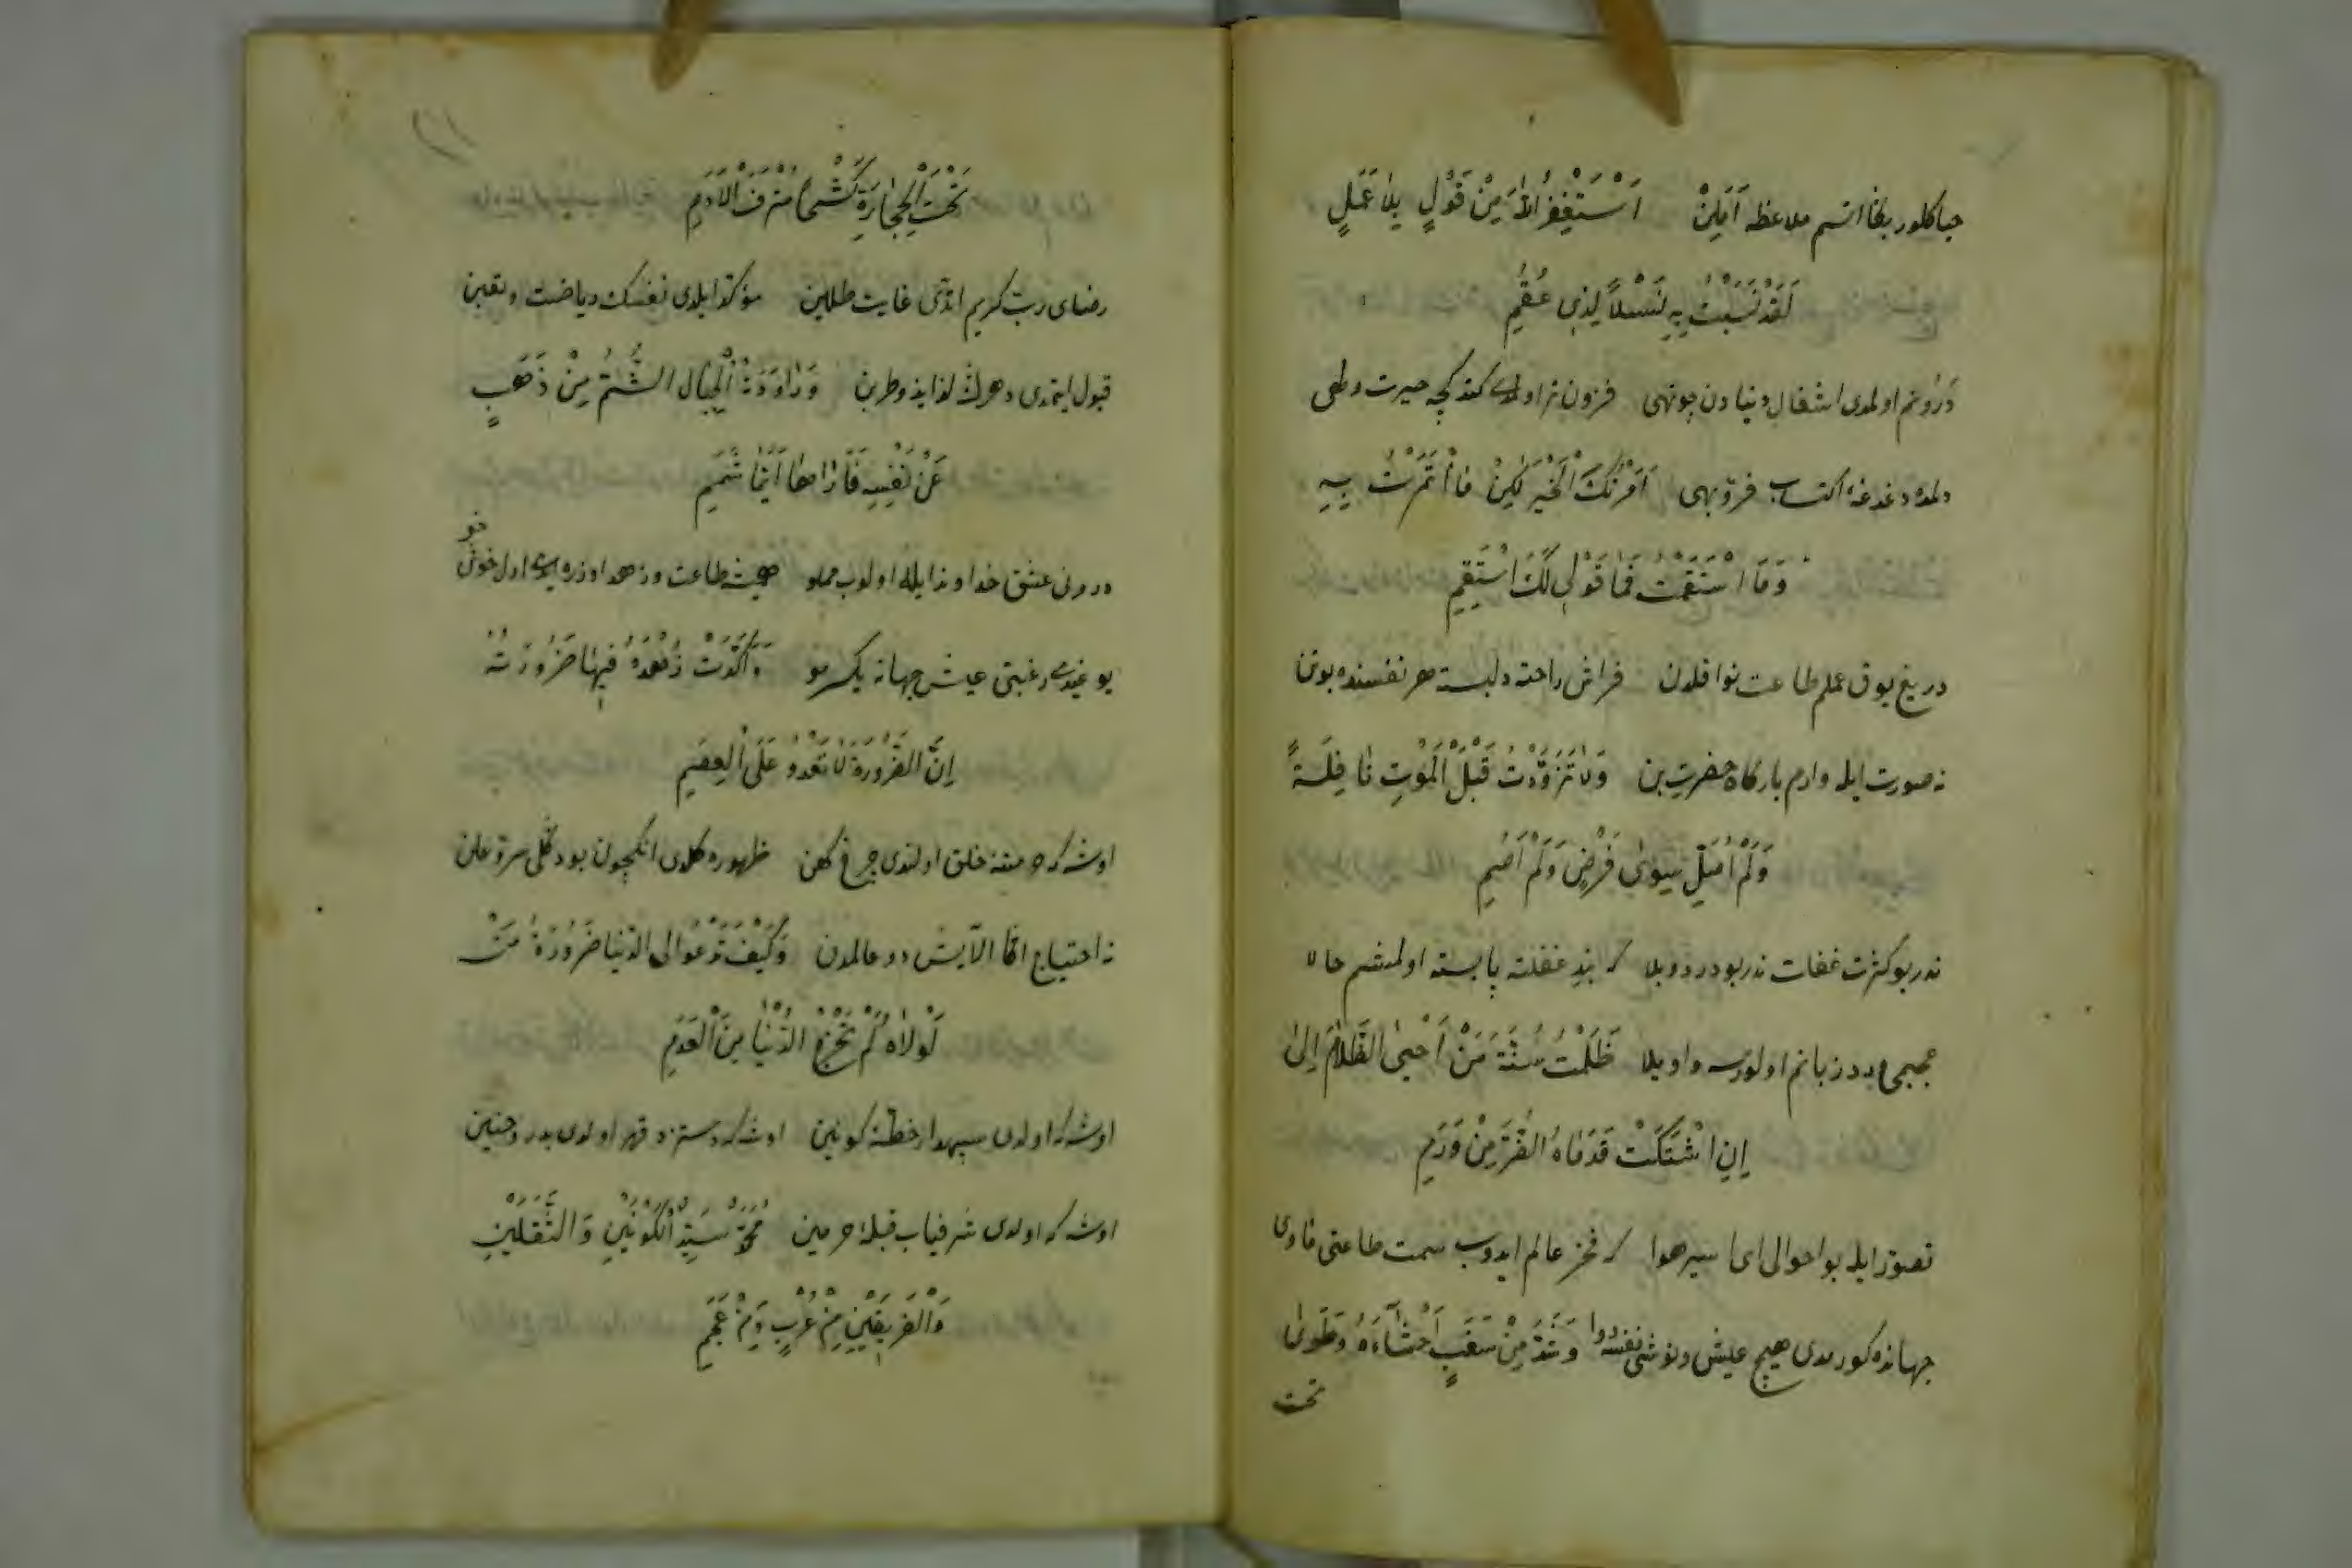 حیا کلور بکا اتسم ملاعظه اَمَلِنْ اَسْتَغْفِرُ اللّٰهَ مِنْ قَوْلٍ بِلاَ عَمَلٍ
لَقَدْ نَسَبْتُ بِهِ نَسْلاً لِذِى عُقُمِ
درونم اولمدی اشغال دنیادن چو تهی فزون تر اولمده کندکجه حیرت و
دلمده دغدغهٔ اکتساب فرّ و بهی اَمَرْتُكَ الْخَيْرَ لٰكِنْ مَا ائْتَمَرْتُ بِهِ
وَمَا اسْتَقَمْتُ فَمَا قَوْلِى لَكَ اسْتَقِمِ
دریغ یوق عملم طاعت نوافلدن فراش راحته دلبسته هر نفسنده بوتن
نه صورت ایله وارم بارکاه حضرته بن وَلاَ تَزَوَّدْتُ قَبْلَ الْمَوْتِ نَافِلَةً
وَلَمْ اُصَلِّ سِوٰى فَرْضٍ وَلَمْ اَصُمِ
ندر بو کثرت غفلت ندر بو درد و بلا که بند غفلته پا بسته اولمشم حالا
ورد زبانم اولورسه واویلا ظَلَمْتُ سُنَّةَ مَنْ اَحْيَى الظَّلاَمَ اِلٰى
اِنِ اشْتَكَتْ قَدَمَاهُ الضُّرَّ مِنْ وَرَمِ
تصوّر ایله بو احوالی ای اسیر هوا که فخر عالم ایدوب سمت طاعتی مأوی
جهانده کورمدی هیچ عیش و نوشی نفسه روا وَشَدَّ مِنْ سَغَبٍ اَحْشَاءَهُ وَطَوٰى
تحت
تَحْتَ الْحِجَارَةِ كَشْحًا مُتْرَفَ الْاَدَمِ
رضای ربّ کریم اتدی غایت طلبین مؤکد ایلدی نفسنك ریاضت و تعبن
قبول ایتمدی دهرك لذاید و طربن وَرَاوَدَتْهُ الْجِبَالُ الشُّمُّ مِنْ ذَهَبٍ
عَنْ نَفْسِهِ فَاَرَاهَا اَيَّمَا شَمَمِ
درونی عشق خداوند ایله اولوب مملو طاعت و زهد اوزره اول خوش خو
یوغیدی رغبتی عیش جهانه یکسر مو وَاَكَّدَتْ زُهْدَهُ فِيهَا ضَرُورَتُهُ
اِنَّ الضَّرُورَةَ لاَ تَعْدُو عَلَى الْعِصَمِ
اوشه که خلق اولندی چرخ کهن ظهوره کلدی انکیچون بو کلّ سرّ و علن
نه احتیاج اکا آلایش دو عالمدن وَكَيْفَ تَدْعُو اِلَى الدُّنْيَا ضَرُورَةُ مَنْ
لَوْلاَهُ لَمْ تَخْرُجِ الدُّنْيَا مِنَ الْعَدَمِ
اوشه که اولدی سپهدار خطّهٔ کونین اوشه که دستزد قهر اولدی بدر و حنین
اوشه که اولدی شرفیاب قبلهٔ حرمین مُحَمَّدٌ سَيِّدُ الْكَوْنَيْنِ وَالثَّقَلَيْنِ
وَالْفَرِيقَيْنِ مِنْ عُرْبٍ وَمِنْ عَجَمِ